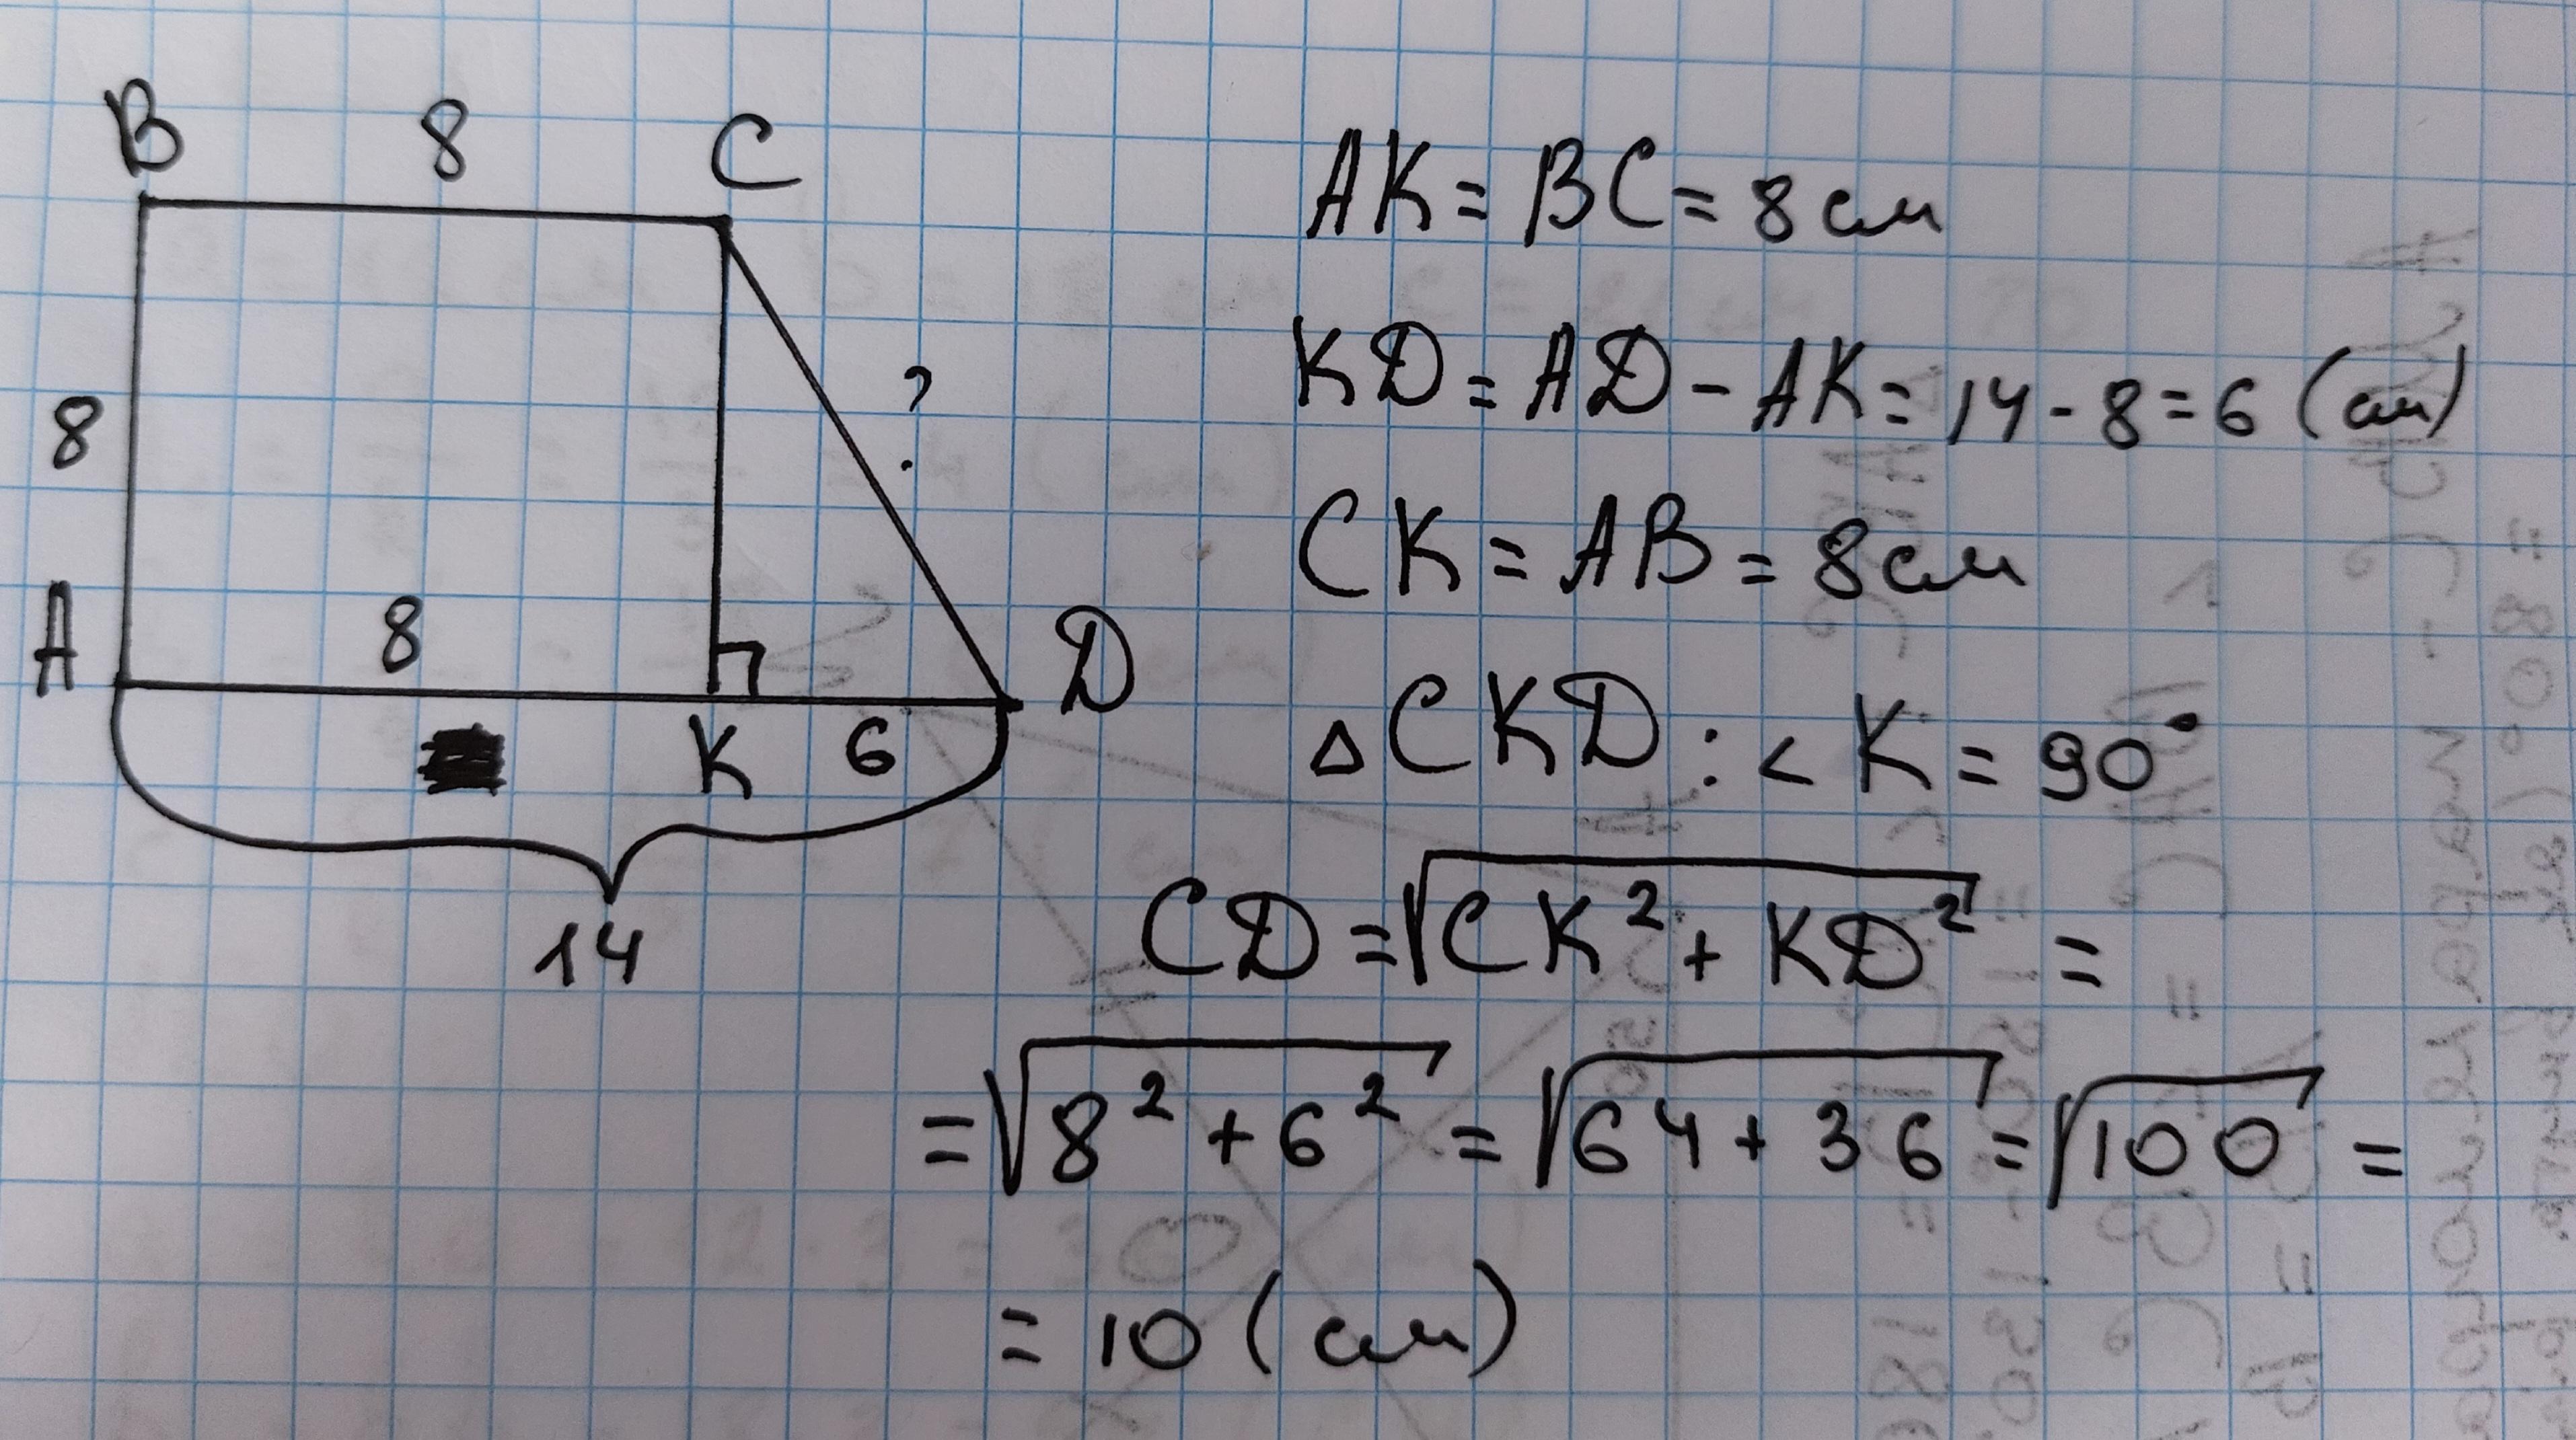 B 8 C
8
?
A 8 D
K 6
14
AK = BC = 8 см
KD = AD - AK = 14 - 8 = 6 (см)
CK = AB = 8 см
△CKD: < K = 90°
CD = √CK² + KD² =
= √8² + 6² = √64 + 36 = √100 =
= 10 (см)